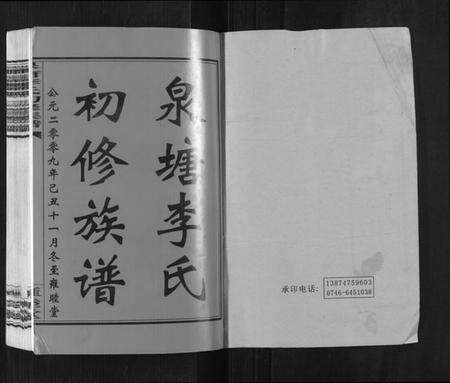 泉塘李氏
初修族谱
公元二零零九年己丑十一月冬至雍睦堂
承印电话：
13874759603
0746-6451038